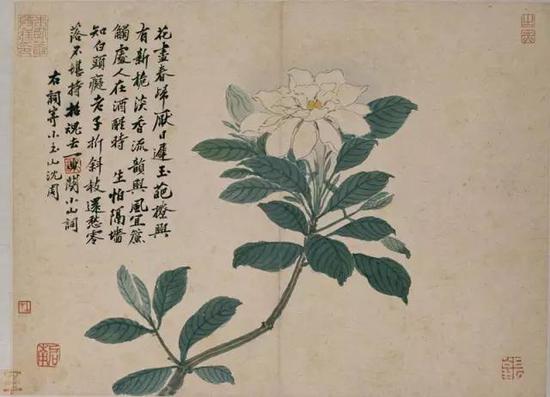 花盡春歸厭日遲玉葩撩興
有新梔淡香流韻與風宜簾
觸處人在酒醒時生怕隔墙
知白頭癡老子折斜枝還愁零
落不堪持招魂去一小山詞
右詞寄小重山沈周